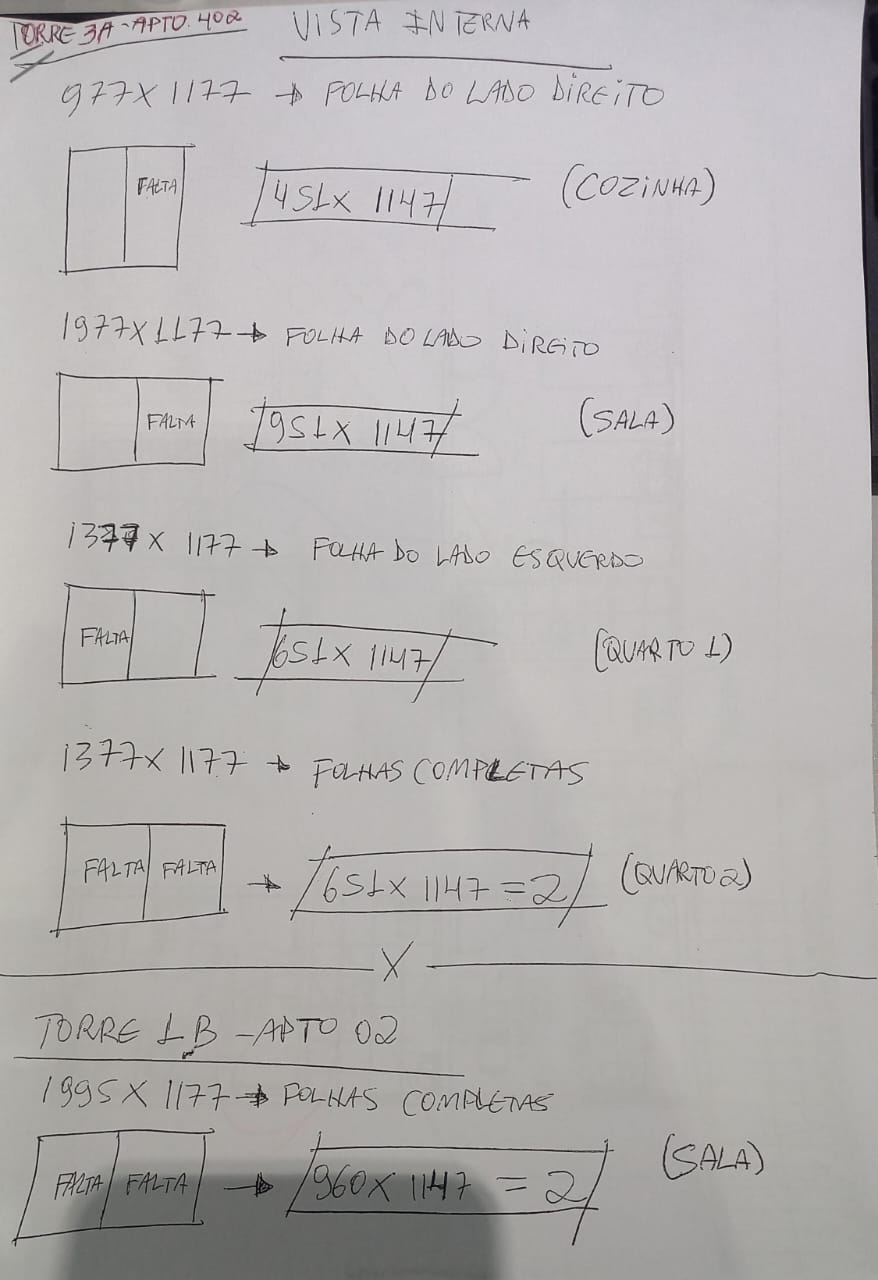 TORRE 3A - APTO. 402
VISTA INTERNA
977 X 1177 → FOLHA DO LADO DIREITO
FALTA
451 X 1147
(COZINHA)
1977 X 1177 → FOLHA DO LADO DIREITO
FALTA
951 X 1147
(SALA)
1377 X 1177 → FOLHA DO LADO ESQUERDO
FALTA
651 X 1147
(QUARTO 1)
1377 X 1177 → FOLHAS COMPLETAS
FALTA FALTA → 651 X 1147 = 2 (QUARTO 2)
X
TORRE 1B - APTO 02
1995 X 1177 → FOLHAS COMPLETAS
FALTA FALTA → 960 X 1147 = 2 (SALA)